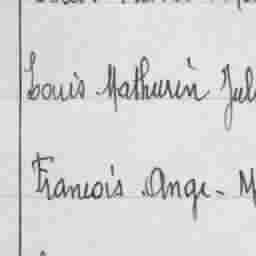 Louis Mathurin Jul
François Ange- M